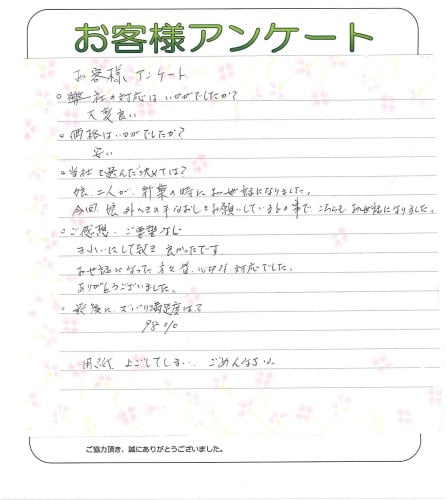 お客様アンケート
お客様アンケート
○弊社の対応はいかがでしたか?
大変良い
○価格はいかがでしたか?
安い
○当社を選んだ決めては?
娘、二人が、新築の時にお世話になりました。
今回、娘 外ヘキの手なおしをお願いしているとの事で、こちらもお世話になりました。
○ご感想、ご要望など
きれいにして頂き 良かったです
お世話になった方々皆、心切な対応でした。
ありがとうございました。
○最後に、ズバリ満足度は?
98%
用紙 よごしてしまい、ごめんなさい
ご協力頂き、誠にありがとうございました。